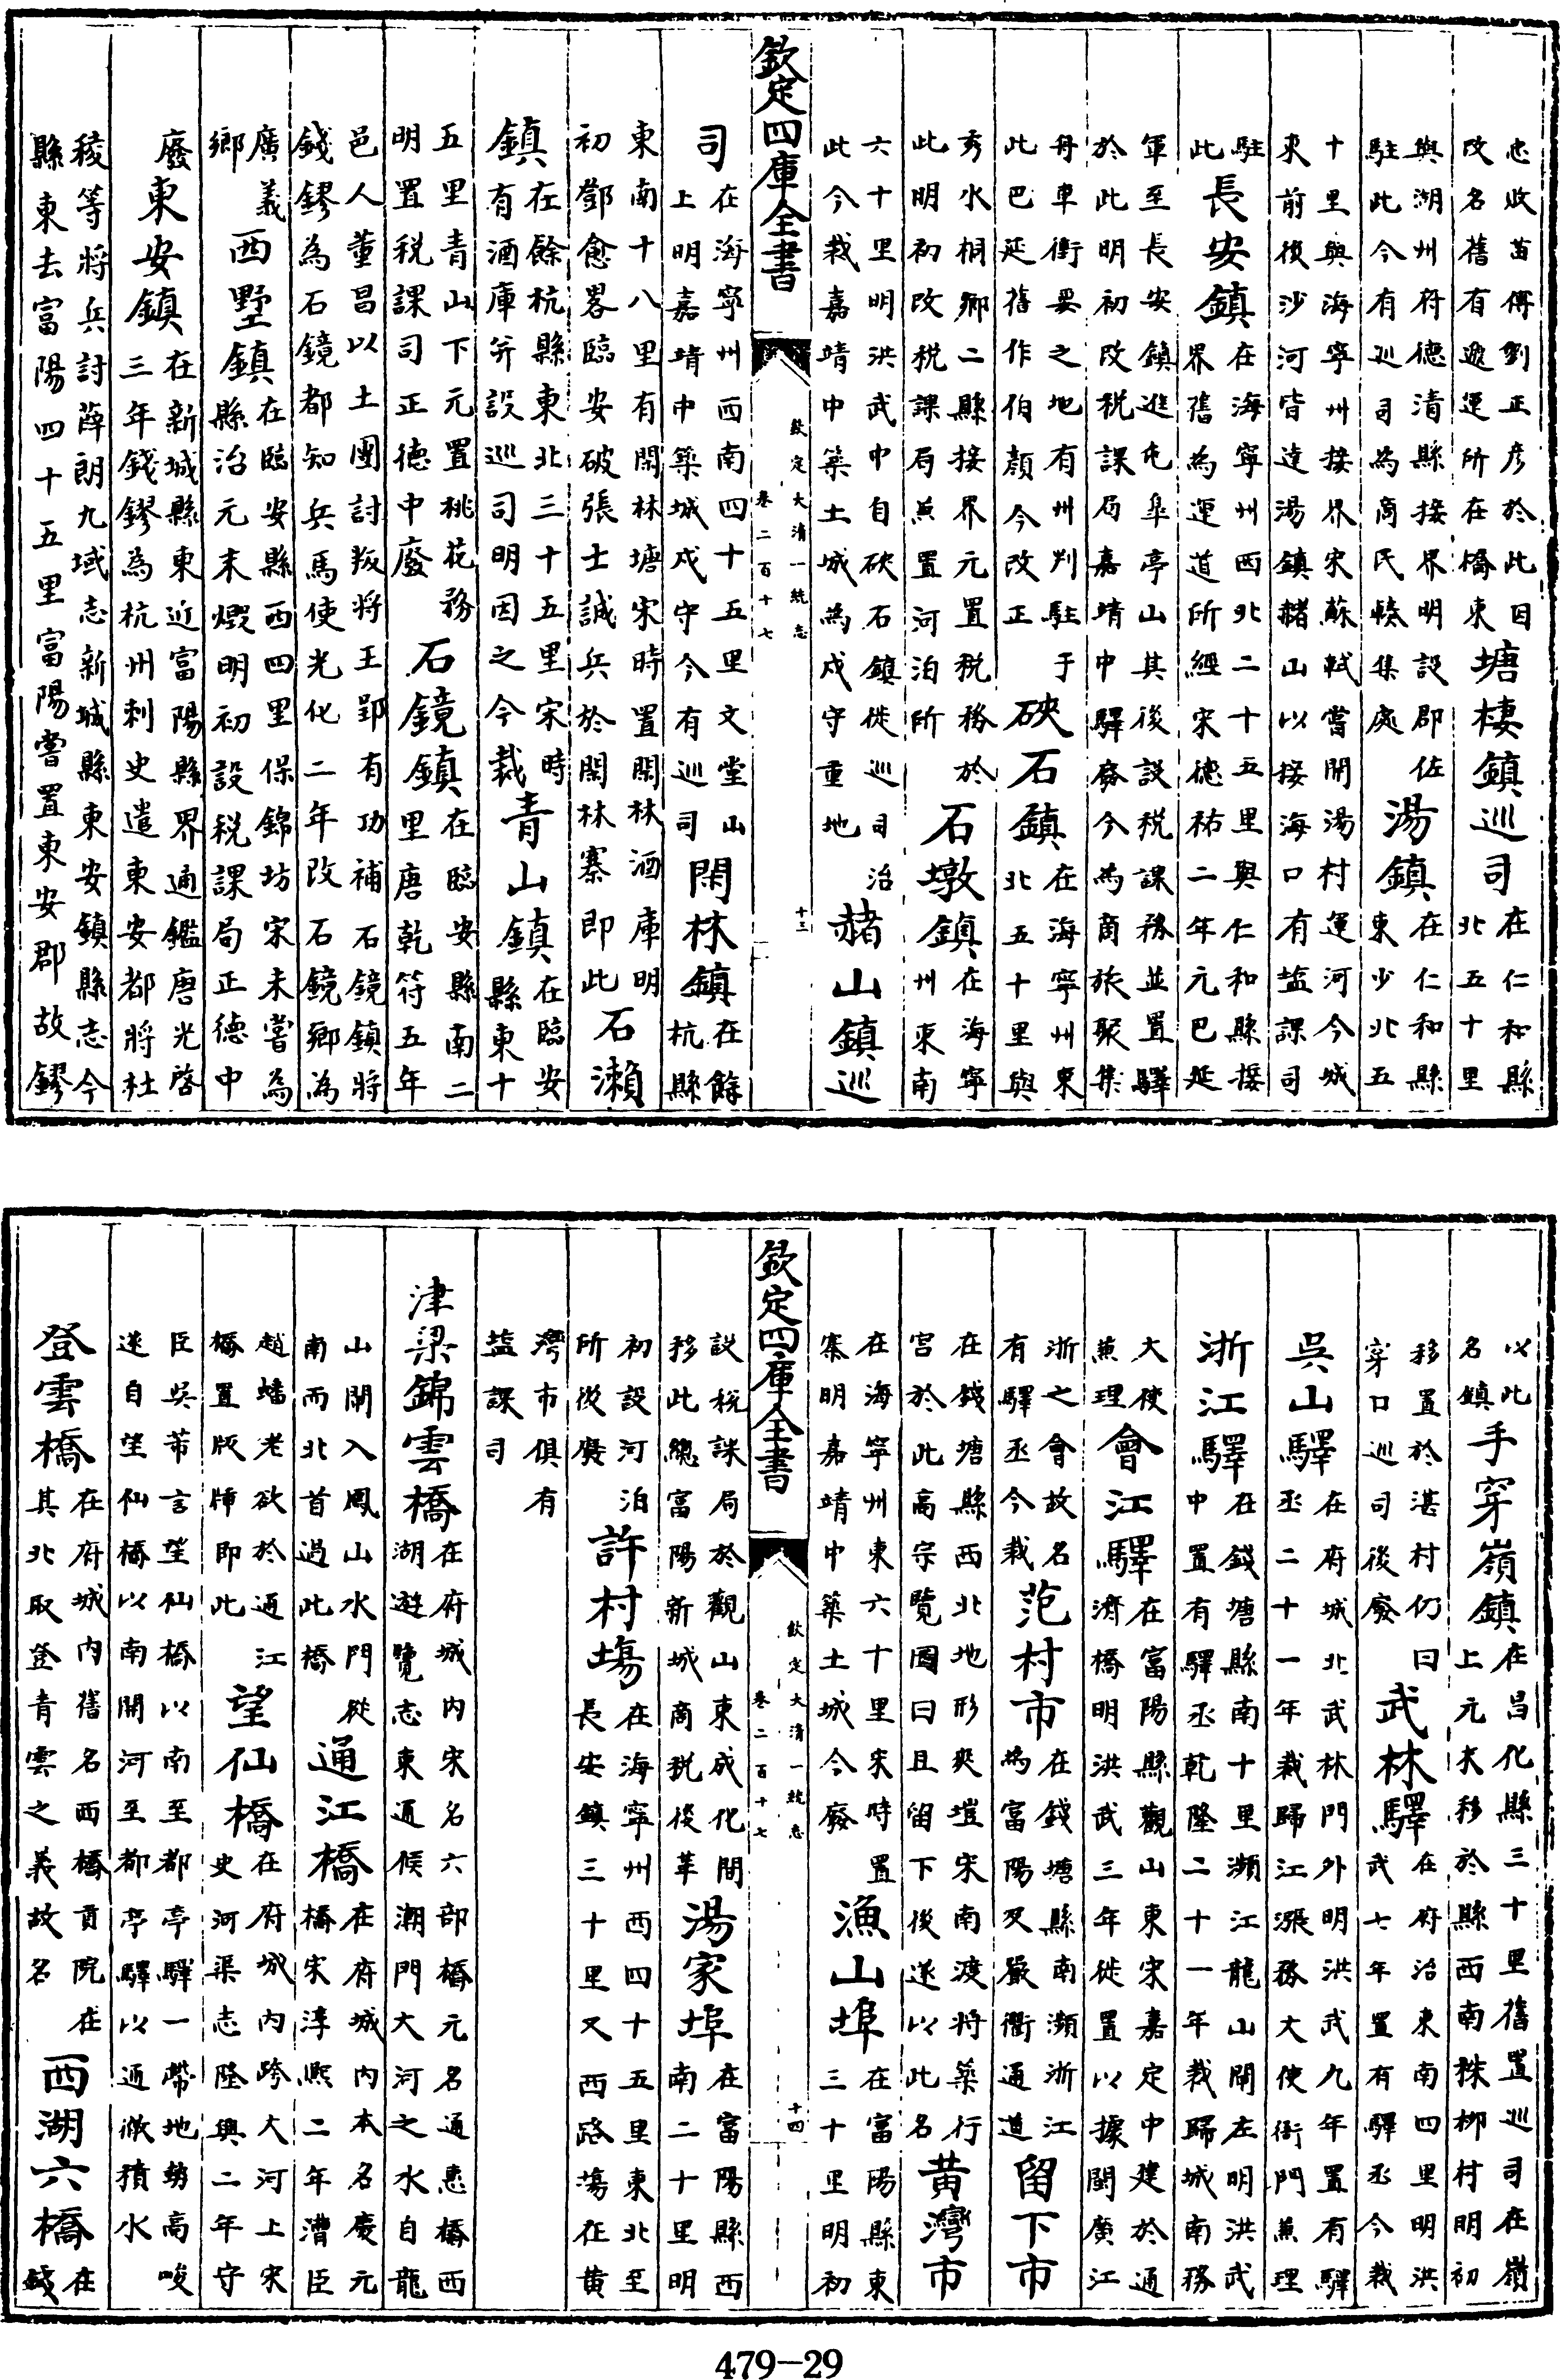 忠收苗傅劉正彥於此因
改名舊有遞運所在橋東
塘棲鎮巡司
在仁和縣
北五十里
與湖州府德清縣接界明設郡佐
駐此今有巡司為商民輳集處
湯鎮
在仁和縣
東少北五
十里與海寧州接界宋蘇軾嘗開湯村運河今城
東前後沙河皆達湯鎮赭山以接海口有盐課司
駐
此
長安鎮
在海寧州西北二十五里與仁和縣接
界舊為運道所經宋德祐二年元巴延
軍至長安鎮進屯臯亭山其後設税課務並置驛
於此明初改税課局嘉靖中驛廢今為商旅聚集
舟車衝要之地有州判駐于
此巴延舊作伯顔今改正
硤石鎮
在海寧州東
北五十里與
秀水桐鄉二縣接界元置税務於
此明初改税課局兼置河泊所
石墩鎮
在海寧
州東南
六十里明洪武中自硤石鎮徙巡司治
此今裁嘉靖中築土城為戍守重地
赭山鎮巡
欽定四庫全書
欽定大清一統志
卷二百十七
十三
司
在海寧州西南四十五里文堂山
上明嘉靖中築城戍守今有巡司
閑林鎮
在餘
杭縣
東南十八里有閑林塘宋時置閑林酒庫明
初鄧愈畧臨安破張士誠兵於閑林寨即此
石瀨
鎮
在餘杭縣東北三十五里宋時
有酒庫并設巡司明因之今裁
青山鎮
在臨安
縣東十
五里青山下元置桃花務
明置税課司正德中廢
石鏡鎮
在臨安縣南二
里唐乾符五年
邑人董昌以土團討叛將王郢有功補石鏡鎮將
錢鏐為石鏡都知兵馬使光化二年改石鏡鄉為
廣義
鄉
西墅鎮
在臨安縣西四里保錦坊宋末嘗為
縣治元末燬明初設税課局正德中
廢
東安鎮
在新城縣東近富陽縣界通鑑唐光啓
三年錢鏐為杭州刺史遣東安都將杜
稜等將兵討薛朗九域志新城縣東安鎮縣志今
縣東去富陽四十五里富陽嘗置東安郡故鏐
以此
名鎮
手穿嶺鎮
在昌化縣三十里舊置巡司在嶺
上元末移於縣西南株栁村明初
移置於湛村仍曰
穿口巡司後廢
武林驛
在府治東南四里明洪
武七年置有驛丞今裁
吳山驛
在府城北武林門外明洪武九年置有驛
丞二十一年裁歸江漲務大使衙門兼理
浙江驛
在錢塘縣南十里瀕江龍山閘左明洪武
中置有驛丞乾隆二十一年裁歸城南務
大使
兼理
會江驛
在富陽縣觀山東宋嘉定中建於通
濟橋明洪武三年徙置以據閩廣江
浙之會故名
有驛丞今裁
范村市
在錢塘縣南瀕浙江
為富陽又嚴衢通道
留下市
在錢塘縣西北地形爽塏宋南渡將築行
宮於此高宗覽圖曰且留下後遂以此名
黄灣市
在海寧州東六十里宋時置
寨明嘉靖中築土城今廢
漁山埠
在富陽縣東
三十里明初
欽定四庫全書
欽定大清一統志
卷二百十七
十四
設税課局於觀山東成化間
移此總富陽新城商税後革
湯家埠
在富陽縣西
南二十里明
初設河泊
所後廢
許村塲
在海寧州西四十五里東北至
長安鎮三十里又西路蕩在黄
灣市俱有
盐課司
津梁
錦雲橋
在府城内宋名六部橋元名通惠橋西
湖遊覽志東通候潮門大河之水自龍
山閘入鳳山水門從
南而北首過此橋
通江橋
在府城内本名慶元
橋宋淳熙二年漕臣
趙磻老欲於通江
橋置版牐即此
望仙橋
在府城内跨大河上宋
史河渠志隆興二年守
臣吳芾言望仙橋以南至都亭驛一帶地勢高峻
遂自望仙橋以南開河至都亭驛以通徹積水
登雲橋
在府城内舊名西橋貢院在
其北取登青雲之義故名
西湖六橋
在
錢
479-29